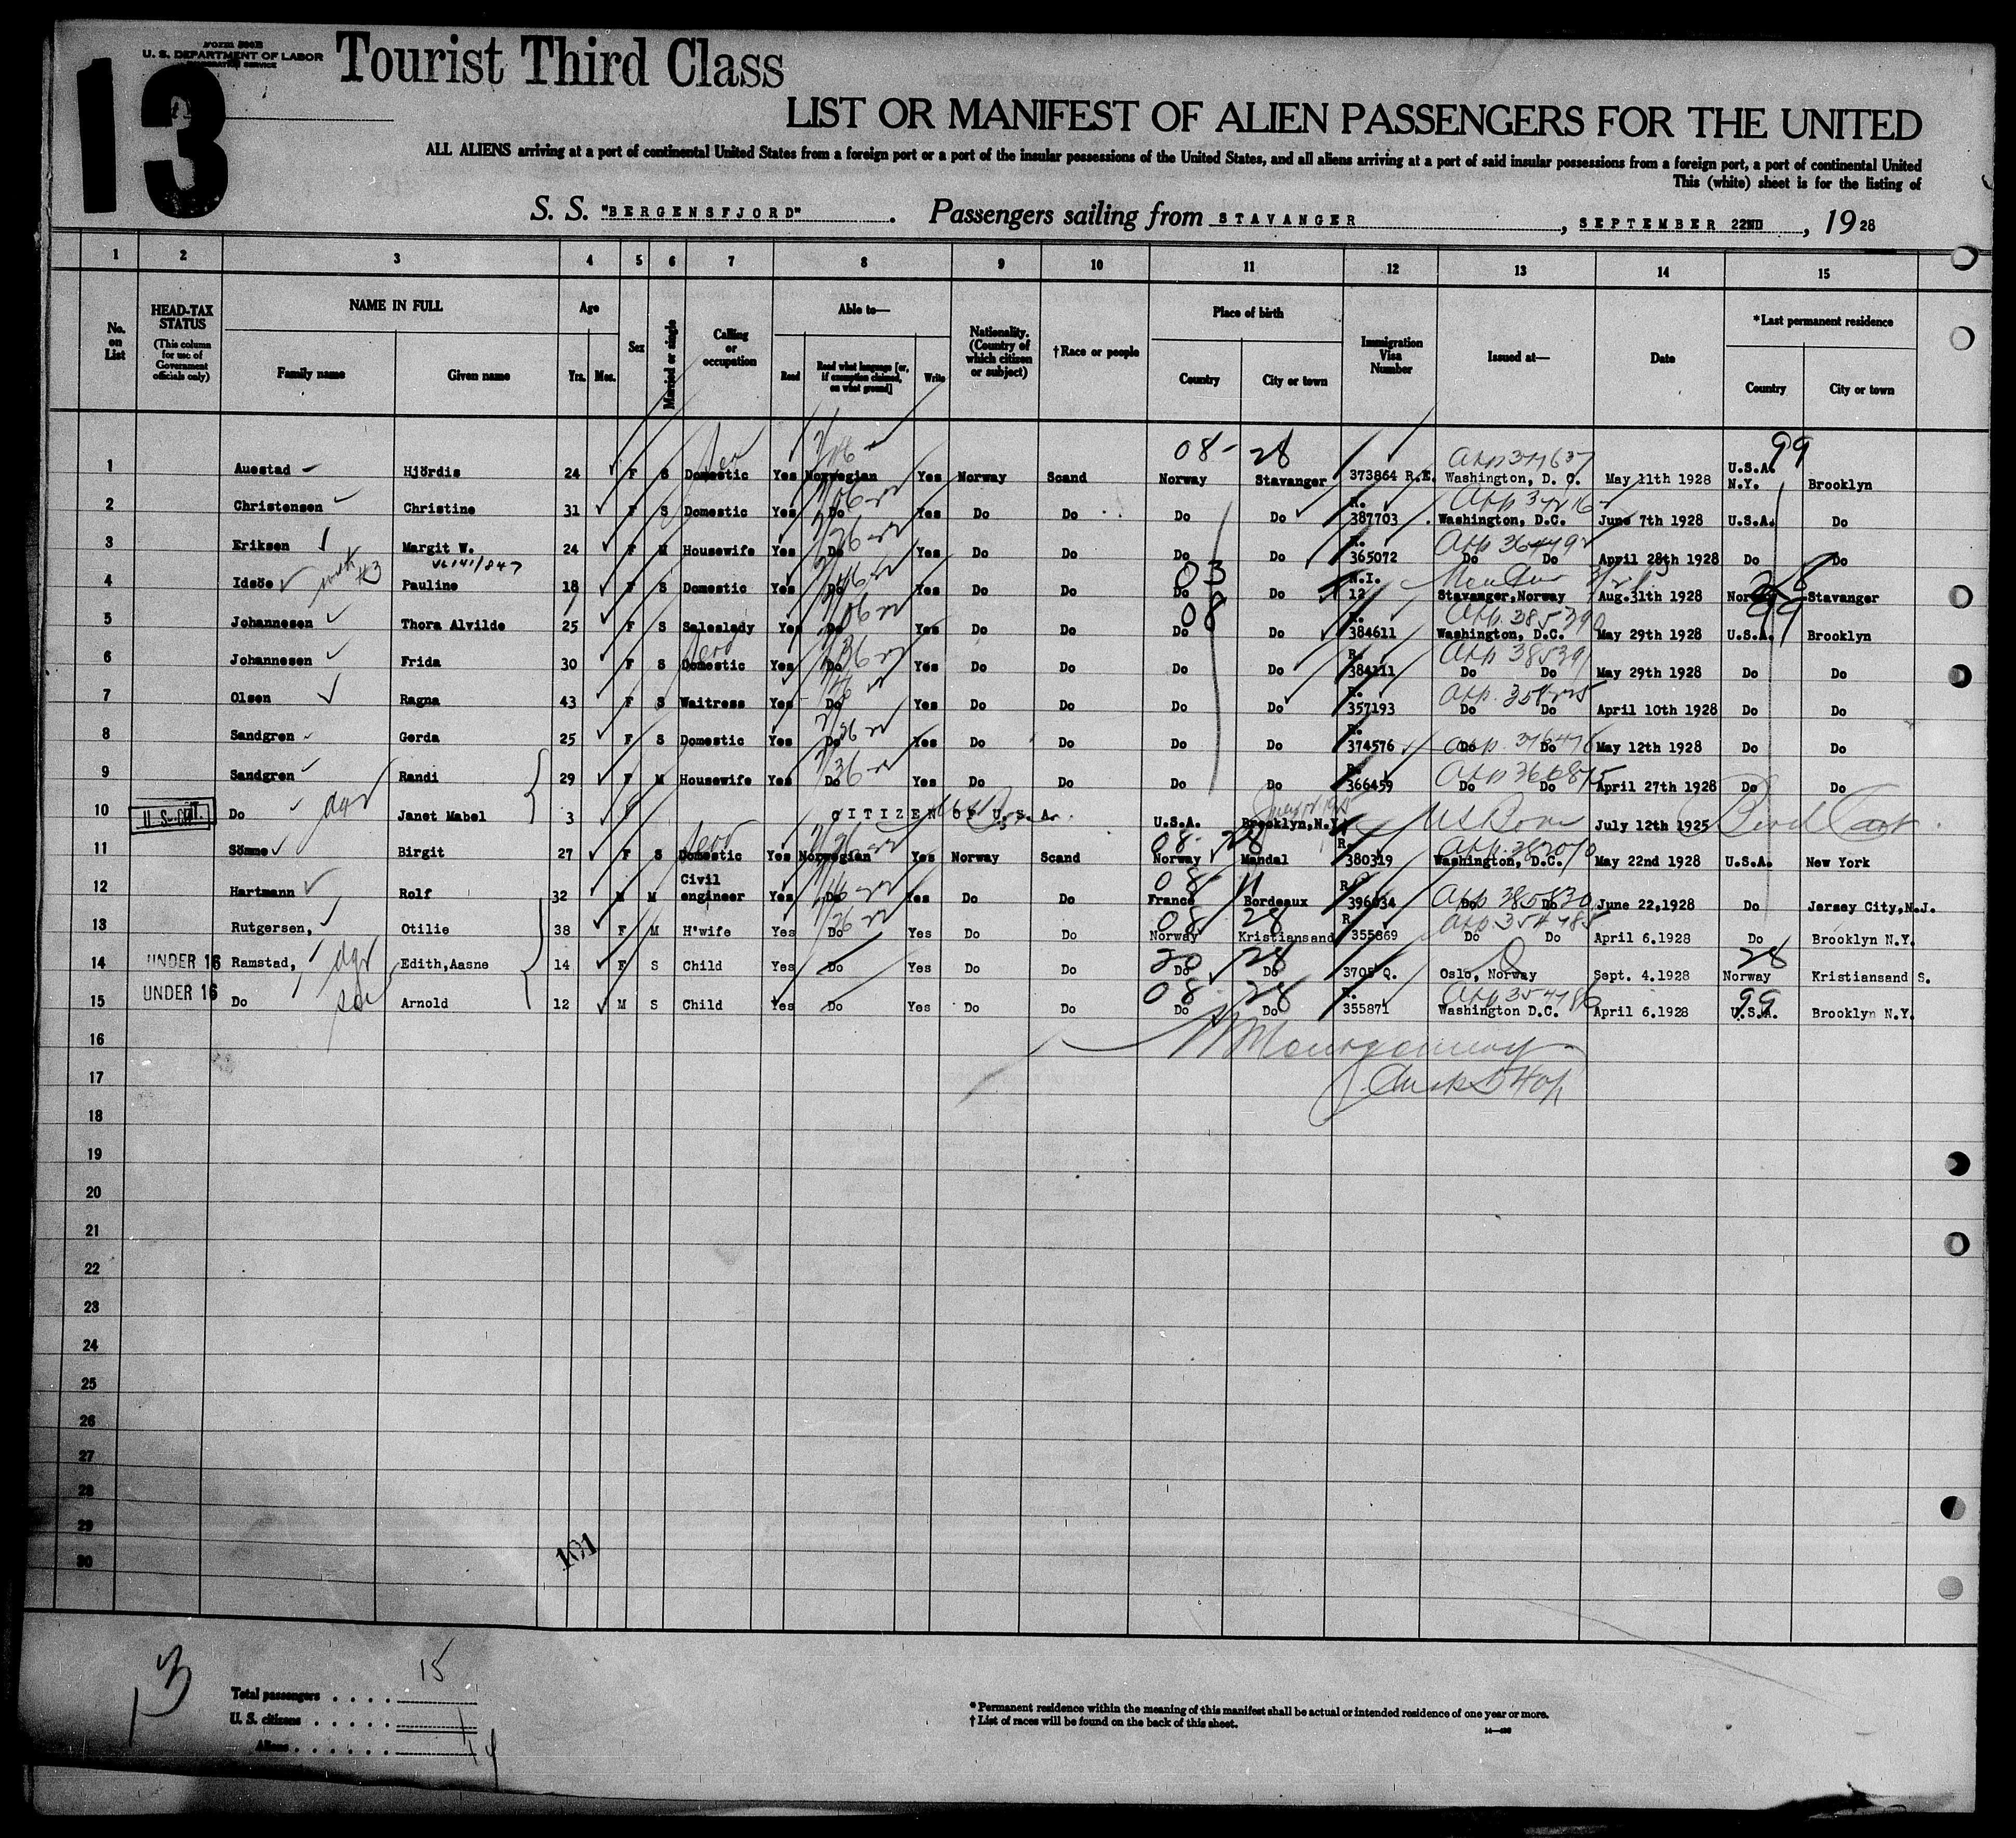 13
Form 500B
U. S. DEPARTMENT OF LABOR
IMMIGRATION SERVICE
Tourist Third Class
LIST OR MANIFEST OF ALIEN PASSENGERS FOR THE UNITED
ALL ALIENS arriving at a port of continental United States from a foreign port or a port of the insular possessions of the United States, and all aliens arriving at a port of said insular possessions from a foreign port, a port of continental United
This (white) sheet is for the listing of
S. S. "BERGENSFJORD". Passengers sailing from STAVANGER, SEPTEMBER 22ND, 1928
1 2 3 4 5 6 7 8 9 10 11 12 13 14 15
No. on List HEAD-TAX STATUS (This column for use of Government officials only) NAME IN FULL Family name Given name Age Yrs. Mos. Sex Married or single Calling or occupation Able to— Read Read what language [or, if exemption claimed, on what ground] Write Nationality. (Country of which citizen or subject) †Race or people Place of birth Country City or town Immigration Visa Number Issued at— Date *Last permanent residence Country City or town
08- 28 99
1 Auestad Hjördis 24 F S Domestic Yes Norwegian Yes Norway Scand Norway Stavanger 373864 R.E. Washington, D. C. May 11th 1928 U.S.A. N.Y. Brooklyn
2 Christensen Christine 31 F S Domestic Yes Do Yes Do Do Do Do R. 387703 Washington, D.C. June 7th 1928 U.S.A. Do
3 Eriksen Margit W. 24 F M Housewife Yes Do Yes Do Do Do Do R. 365072 Do Do April 28th 1928 Do Do
4 Idsöe Pauline 18 F S Domestic Yes Do Yes Do Do 03 Do Do N.I. 12 Stavanger,Norway Aug.31th 1928 Norway Stavanger
5 Johannesen Thora Alvilde 25 F S Saleslady Yes Do Yes Do Do 08 Do Do R. 384611 Washington, D.C. App. 385390 May 29th 1928 U.S.A. 99 Brooklyn
6 Johannesen Frida 30 F S Domestic Yes Do Yes Do Do Do Do R. 384111 App 385391 Do Do May 29th 1928 Do Do
7 Olsen Ragna 43 F S Waitress Yes Do Yes Do Do Do Do R. 357193 Do Do April 10th 1928 Do Do
8 Sandgren Gerda 25 F S Domestic Yes Do Yes Do Do Do Do R. 374576 Do Do May 12th 1928 Do Do
9 Sandgren Randi 29 F M Housewife Yes Do Yes Do Do Do Do R. 366459 Do Do April 27th 1928 Do Do
10 U.S.CIT. Do dgr Janet Mabel 3 F CITIZEN OF U.S.A. U.S.A. Brooklyn,N.Y. US Born July 12th 1925
11 Sömme Birgit 27 F S Domestic Yes Norwegian Yes Norway Scand 08- 28 Norway Mandal R. 380319 Washington, D.C. May 22nd 1928 U.S.A. New York
12 Hartmann Rolf 32 M M Civil engineer Yes Do Yes Do Do 08- 11 France Bordeaux R. 396034 Do Do June 22,1928 Do Jersey City,N.J.
13 Rutgersen, Otilie 38 F M H'wife Yes Do Yes Do Do 08 28 Norway Kristiansand R. 355869 App 354785 Do Do April 6.1928 Do Brooklyn N.Y.
14 UNDER 16 Ramstad, dgr Edith,Aasne 14 F S Child Yes Do Yes Do Do 20 28 Do Do 3705 Q. Oslo, Norway Sept. 4.1928 28 Norway Kristiansand S.
15 UNDER 16 Do son Arnold 12 M S Child Yes Do Yes Do Do 08 28 Do Do R. 355871 App 354786 Washington D.C. April 6.1928 99 U.S.A. Brooklyn N.Y.
16
17
18
19
20
21
22
23
24
25
26
27
28
29
30
101
13
Total passengers . . . . 15
U. S. citizens . . . . . 1
Aliens . . . . . . 14
*Permanent residence within the meaning of this manifest shall be actual or intended residence of one year or more.
†List of races will be found on the back of this sheet.